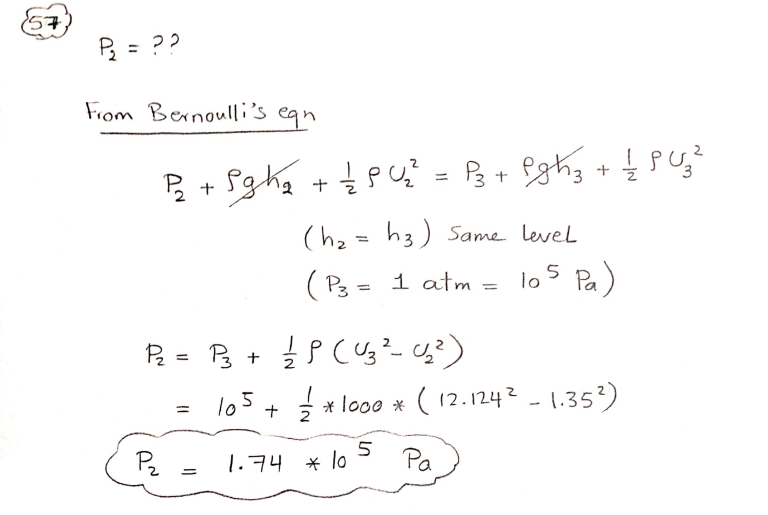 57
P₂ = ??
From Bernoulli's eqn
P₂ + ρgh₂ + ½ ρ U₂² = P₃ + ρgh₃ + ½ ρ U₃²
(h₂ = h₃) Same level
(P₃ = 1 atm = 10⁵ Pa)
P₂ = P₃ + ½ ρ (U₃² - U₂²)
= 10⁵ + ½ * 1000 * (12.124² - 1.35²)
P₂ = 1.74 * 10⁵ Pa